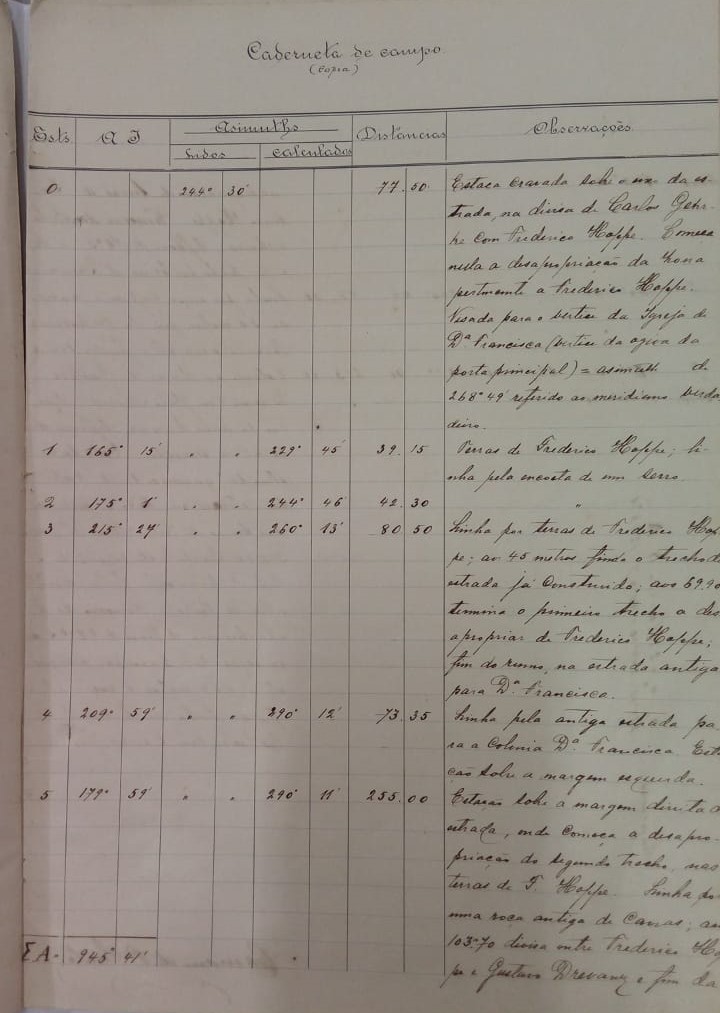 Caderneta de campo.
(Copia)
Ests. A I Asimuths Distancias Observações
Lidos Calculados
0 244° 30' 77.50 Estaca cravada sobre o eixo da es-
trada, na divisa de Carlos Gehr-
ke com Frederico Hoppe. Começa
nesta a desapropriação da zona
pertencente a Frederico Hoppe.
Visada para o vertice da Igreja de
Dª Francisca (vertice da ogiva da
porta principal) = asimuth de
268° 49' referido ao meridiano verda
deiro.
1 165° 15' " " 229° 45' 39.15 Terras de Frederico Hoppe; li-
nha pela encosta de um serro.
2 175° 1' " " 244° 46' 42.30 "
3 215° 27' " " 260° 13' 80 50 Linha por terras de Frederico Hop
pe; aos 45 metros finda o trecho d
estrada já construido; aos 69.90
termina o primeiro trecho a des
apropriar de Frederico Hoppe;
fim do rumo, na estrada antiga
para Dª Francisca.
4 209° 59' " " 290° 12' 73.35 Linha pela antiga estrada pa-
ra a Colonia Dª Francisca. Est
ção sobre a margem esquerda.
5 179° 59' " " 290° 11' 255.00 Estação sobre a margem direita d
estrada, onde começa a desapro-
priação do segundo trecho, nas
terras de F. Hoppe. Linha por
uma roça antiga de Cannas; aos
103.70 divisa entre Frederico Ho
ΣA = 945° 41' pe e Gustavo e fim da